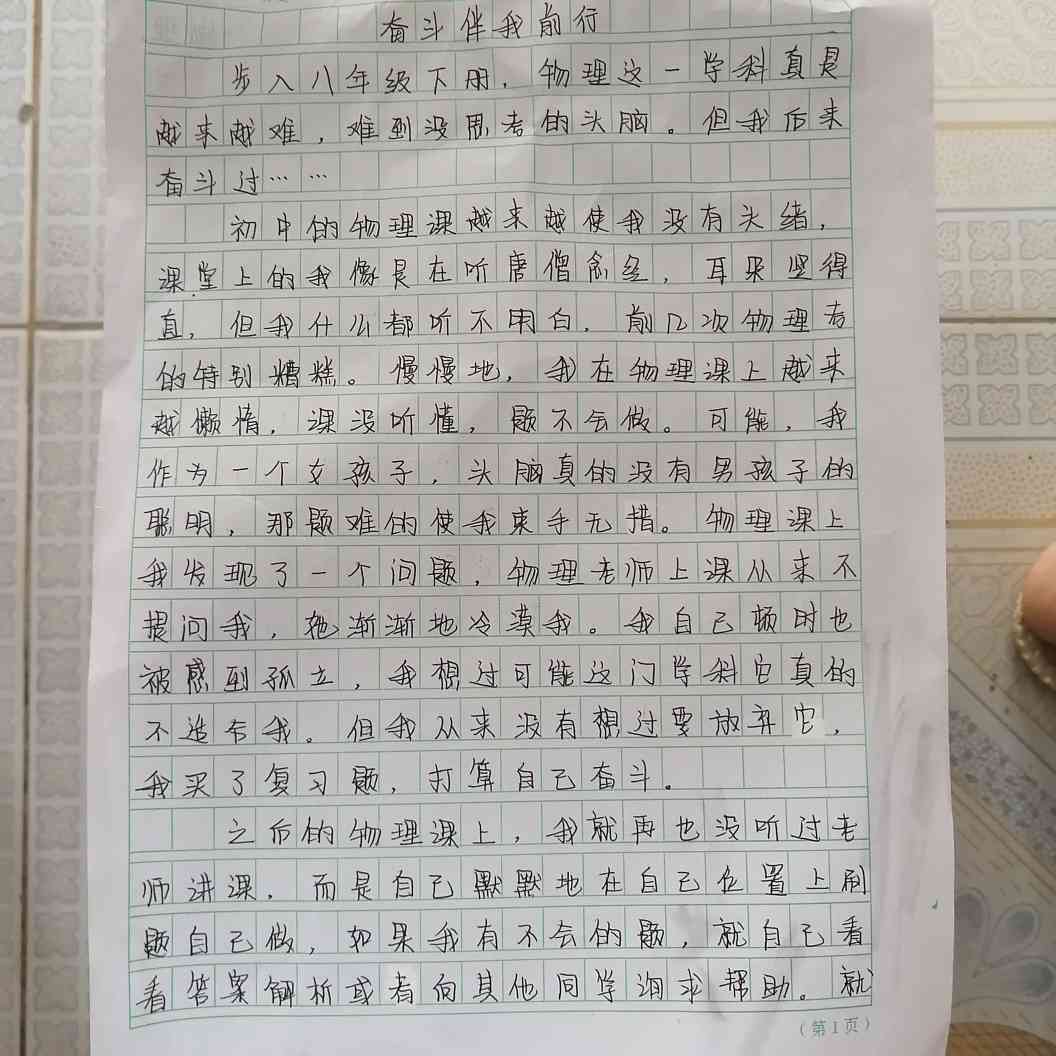 奋斗伴我前行
步入八年级下册，物理这一学科真是
越来越难，难到没思考的头脑。但我后来
奋斗过……
初中的物理课越来越使我没有头绪，
课堂上的我像是在听唐僧念经，耳朵竖得
直，但我什么都听不明白，前几次物理考
的特别糟糕。慢慢地，我在物理课上越来
越懒惰，课没听懂，题不会做。可能，我
作为一个女孩子，头脑真的没有男孩子的
聪明，那题难的使我束手无措。物理课上
我发现了一个问题，物理老师上课从来不
提问我，她渐渐地冷漠我。我自己顿时也
被感到孤立，我想过可能这门学科它真的
不适合我。但我从来没有想过要放弃它，
我买了复习题，打算自己奋斗。
之后的物理课上，我就再也没听过老
师讲课，而是自己默默地在自己位置上刷
题自己做，如果我有不会的题，就自己看
看答案解析或者向其他同学询求帮助。就
（第1页）